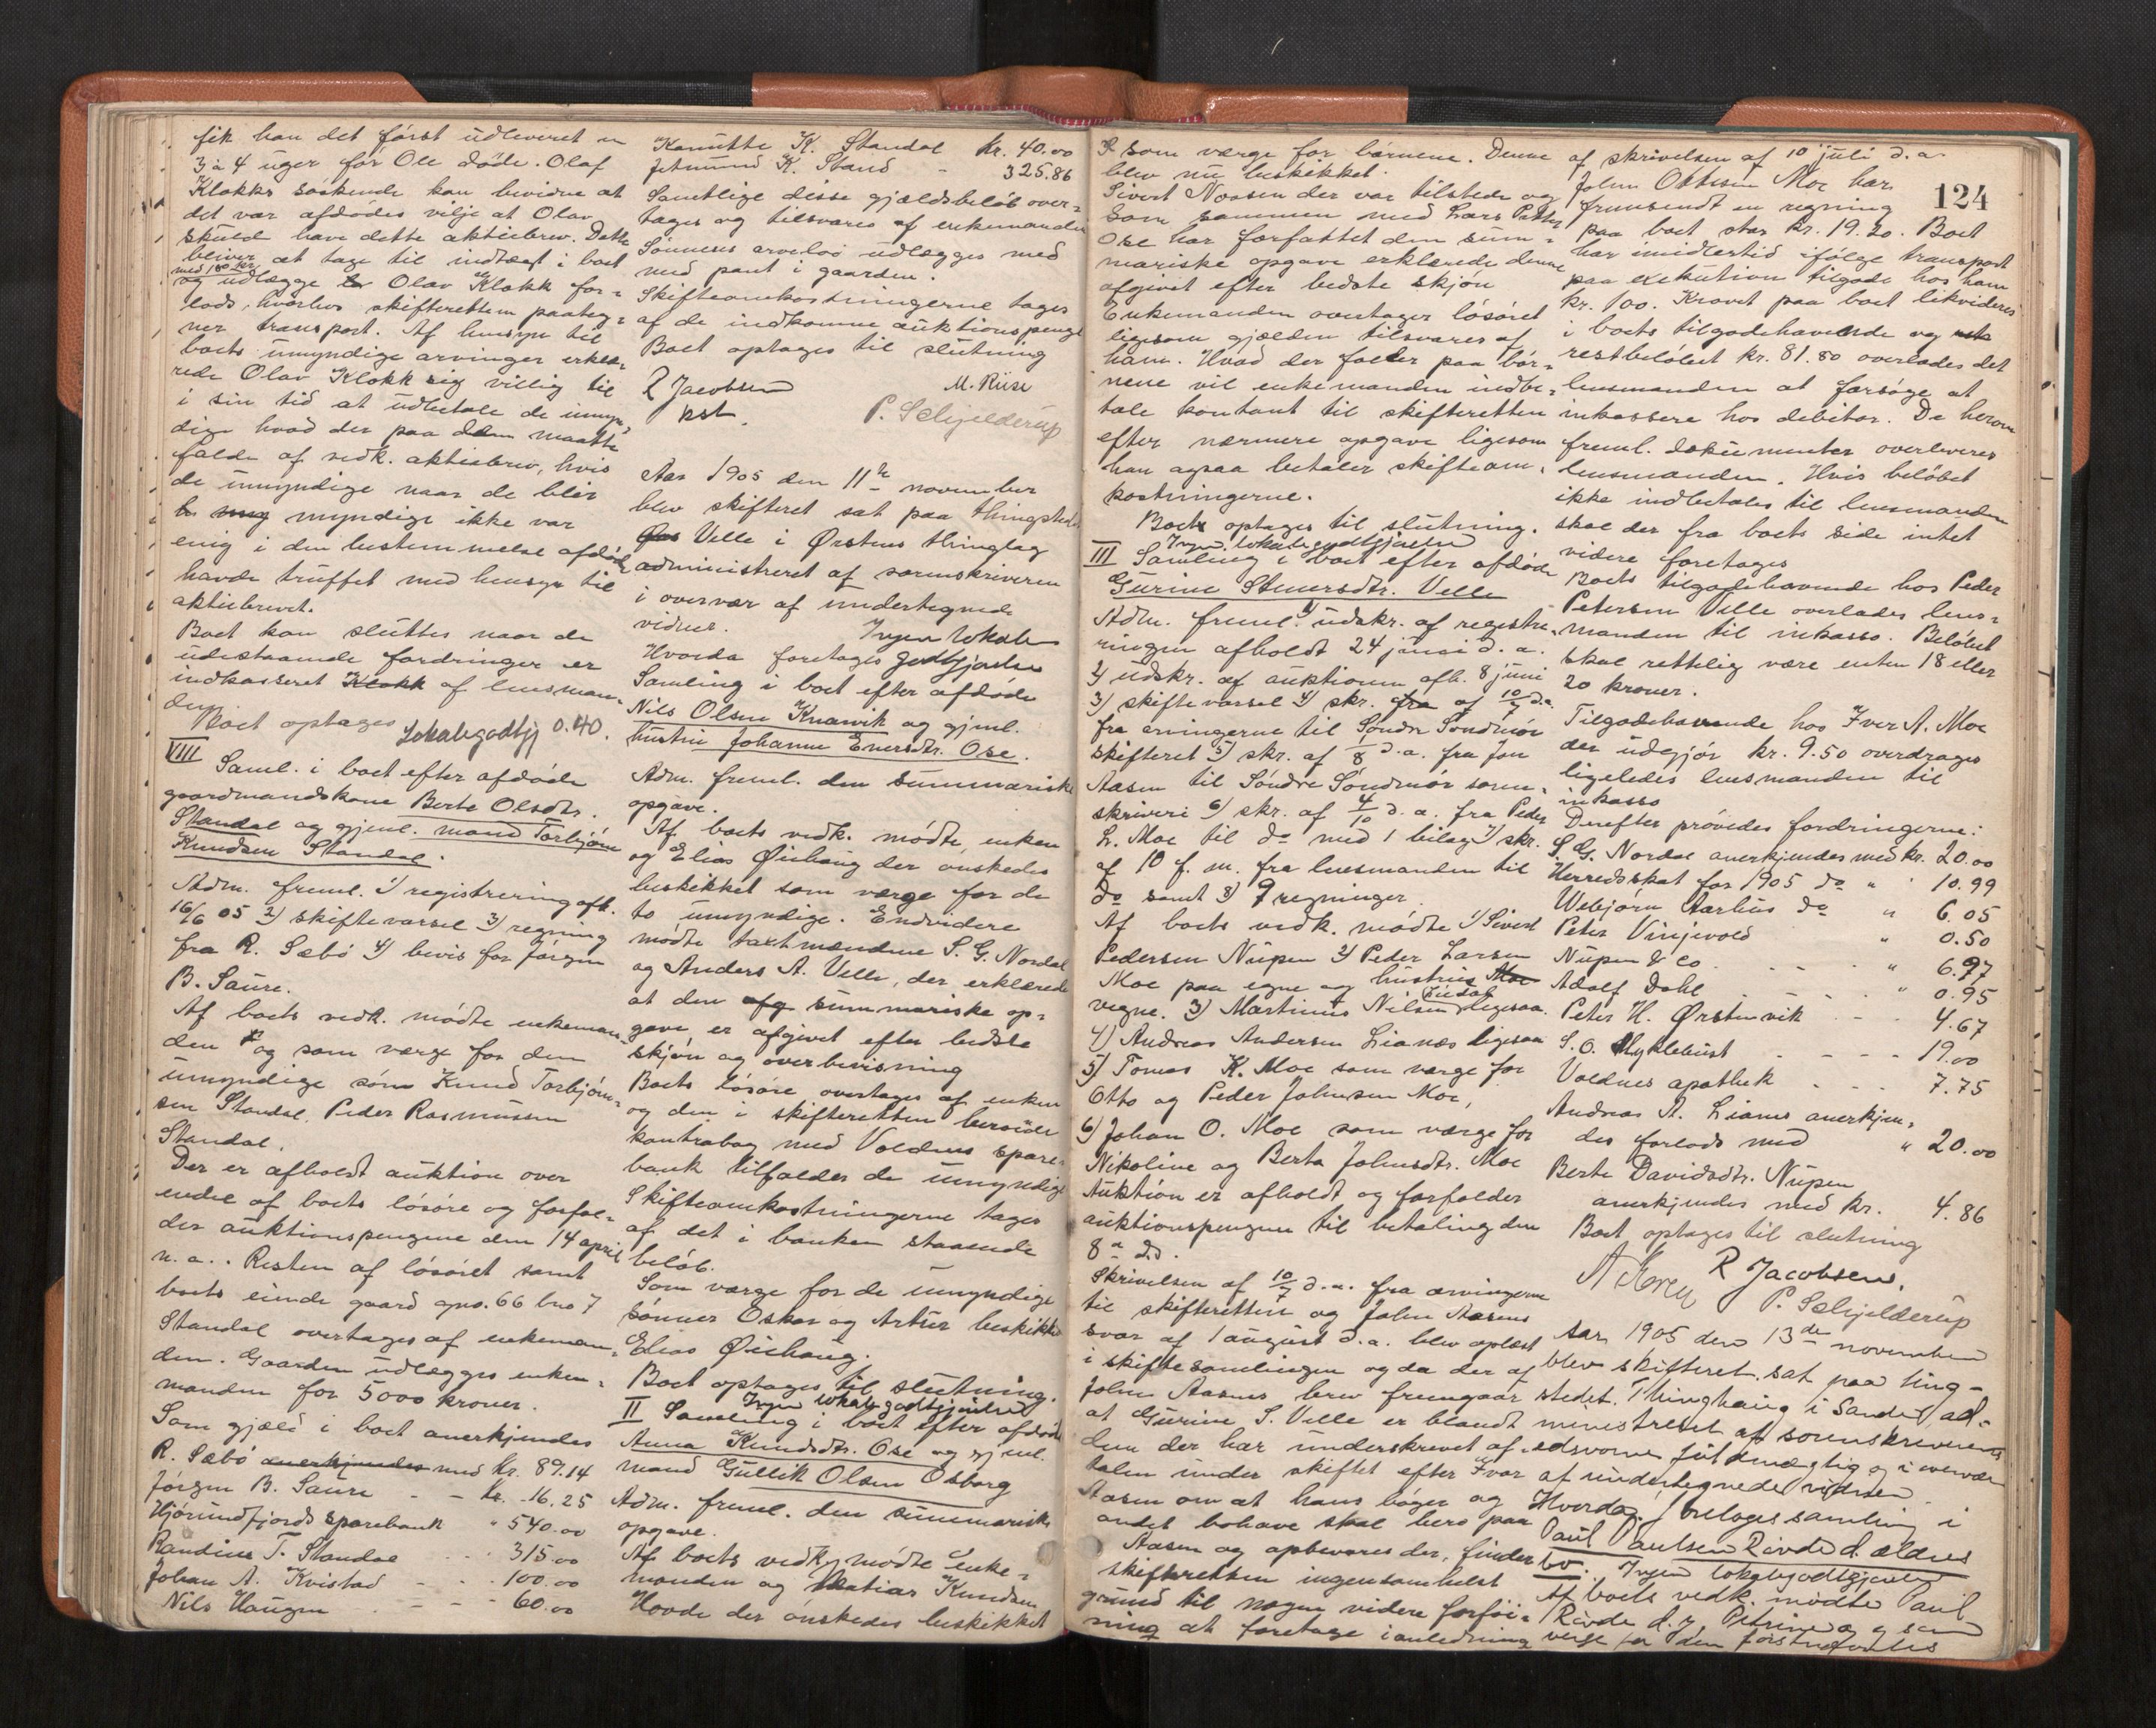 fik han det først udleveret en
3 à 4 uger før Ole døde. Olaf
Klokks søskende kan bevidne at
det var afdødes vilje at Olav
skulde have dette aktiebrev. Dette
bliver at tage til indtægt i boet
med 180 kr.
og udlægge Olav Klokk for-
lods, hvorhos skifteretten paateg-
ner transport. Af hensyn til
boets umyndige arvinger erklæ-
rede Olav Klokk sig villig til
i sin tid at udbetale de umyn-
dige hvad der paa dem maatte
falde af vedk. aktiebrev, hvis
de umyndige naar de blir
myndige ikke var
enig i den bestemmelse afdøde
havde truffet med hensyn til
aktiebrevet.
Boet kan sluttes naar de
udestaaende fordringer er
indkasseret Klokk af lensman-
den.
Boet optages Lokalegodtgj 0.40.
VIII Saml. i boet efter afdøde
gaardmandskone Berte Olsdtr.
Standal og gjenl. mand Torbjørn
Knudsen Standal.
Adm. freml. 1) registrering afh.
16/6 05 2) skiftevarsel 3) regning
fra R. Sæbø 4) bevis for Jørgen
B. Saure.
Af boets vedk. mødte enkeman-
den og som værge for den
umyndige søn Knud Torbjørn-
sen Standal, Peder Rasmussen
Standal.
Der er afholdt auktion over
endel af boets løsøre og forfal-
der auktionspengene den 14 april
n. a.. Resten af løsøret samt
boets eiende gaard gno. 66 bno 7
Standal overtages af enkeman-
den. Gaarden udlægges enke-
manden for 5000 kroner.
Som gjæld i boet anerkjendes
R. Sæbø anerkjendes med kr. 89.14
Jørgen B. Saure - - kr. 16.25
Hjørundfjords sparebank " 540.00
Randine T. Standal - - 315.00
Johan A. Kvistad - - - 100.00
Nils Haugen - - - - 60.00
Kanutte K. Standal kr. 40.00
Jetmund K. Stand - 325.86
Samtlige disse gjældsbeløb over-
tages og tilsvares af enkemanden
Sønnens arvelod udlægges med
med pant i gaarden.
Skifteomkostningerne tages
af de indkomne auktionspenge
Boet optages til slutning
R Jacobsen M. Riise
kst. P. Schjelderup
Aar 1905 den 11te november
blev skifteret sat paa thingstedet
Velle i Ørstens thinglag
administreret af sorenskriveren
i overvær af undertegnede
vidner. Ingen lokale
Hvorda foretages godtgjørelse
Samling i boet efter afdøde
Nils Olsen Knarvik og gjenl.
hustru Johanne Enersdtr. Ose.
Adm. freml. den summariske
opgave.
Af boets vedk. mødte enken
og Elias Øiehaug der ønskedes
beskikket som værge for de
to umyndige. Endvidere
mødte taxtmændene S. G. Nordal
og Anders A. Velle, der erklærede
at den afg summariske op-
gave er afgivet efter bedste
skjøn og overbevisning
Boets løsøre overtages af enken
og den i skifteretten beroede
kontrabog med Voldens spare-
bank tilfalder de umyndige
Skifteomkostningerne tages
af det i banken staaende
beløb.
Som værge for de umyndige
sønner Oskar og Artur beskikkes
Elias Øiehaug.
Boet optages til slutning.
Ingen lokalegodtgjørelse
II Samling i boet efter afdøde
Anna Knudsdtr. Ose og gjenl.
mand Gullik Olsen Osborg
Adm. freml. den summariske
opgave.
Af boets vedk. mødte Enke-
manden og Matias Knudsen
Hovde der ønskedes beskikket
124
som værge for børnene. Denne
blev nu beskikket.
Sivert Noosen der var tilstede og
som sammen med Lars Petter
Ose har forfattet den sum-
mariske opgave erklærede denne
afgivet efter bedste skjøn
Enkemanden overtager løsøret
ligesom gjælden tilsvares af
ham. Hvad der falder paa bør-
nene vil enkemanden indbe-
tale kontant til skifteretten
efter nærmere opgave ligesom
han ogsaa betaler skifteom-
kostningerne.
Boet optages til slutning.
Ingen lokalegodtgjørelse
III Samling i boet efter afdøde
Gurine Steuersdtr. Velle
Adm. freml. 1) udskr. af registre-
ringen afholdt 24 januar d. a.
2) udskr. af auktionen afh. 8 juni
3) skiftevarsel 4) skr. fra af 10/7 d.a.
fra arvingerne til Søndre Søndmør
skifteret 5) skr. af 1/8 d.a. fra Jon
Aasen til Søndre Søndmør soren-
skriveri 6) skr. af 4/10 d. a. fra Peder
L. Moe til do med 1 bilag 7) skr.
af 10 f. m. fra lensmanden til
do samt 8) 9 regninger.
Af boets vedk. mødte 1) Sivert
Pedersen Nupen 2) Peder Larsen
Moe paa egne og hustrus
vegne. 3) Martinus Nilsen ligesaa.
4) Andreas Andersen Lianes ligesaa
5) Tomas K. Moe som værge for
Otto og Peder Johnsen Moe,
6) Johan O. Moe som værge for
Nikoline og Berta Johnsdtr. Moe
Auktion er afholdt og forfalder
auktionspengene til betaling den
8de ds.
Skrivelsen af 10/7 d. a. fra arvingerne
til skifteretten og John Aasens
svar af 1 august d. a. blev oplæst
i skiftesamlingen og da der af
John Aasens brev fremgaar
at Gurine S. Velle er blandt
dem der har underskrevet af-
talen under skiftet efter Ivar
Aasen om at hans bøger og
andet bohave skal bero paa
Aasen og opbevares der, finder
skifteretten ingensomhelst
grund til nogen videre forføi-
ning at foretage i anledning
af skrivelsen af 10 juli d. a.
John Ottesen Moe har
fremsendt en regning
paa boet stor kr. 19.20. Boet
har imidlertid ifølge transport
paa exekution tilgode hos ham
kr. 100. Kravet paa boet likvideres
i boets tilgodehavende og
restbeløbet kr. 81.80 overlades det
lensmanden at forsøge at
inkassere hos debitor. De herom
freml. dokumenter overleveres
lensmanden. Hvis beløbet
ikke indbetales til lensmanden
skal der fra boets side intet
videre foretages
Boets tilgodehavende hos Peder
Petersen Velle overlades lens-
manden til inkasso. Beløbet
skal rettelig være enten 18 eller
20 kroner.
Tilgodehavende hos Iver A. Moe
der udgjør kr. 9.50 overdrages
ligeledes lensmanden til
inkasso
Derefter prøvedes fordringerne:
S. G. Nordal anerkjendes med kr. 20.00
Herredsskat for 1905 do " 10.99
Webjørn Aarhus do " 6.05
Peter Vinjevold " 0.50
Nupen & Co. - - " 6.97
Adolf Dahl - - - " 0.95
Peter H. Ørstenvik - - - 4.67
S. O. Myklebust - - - - 19.00
Voldens apothek - - - 7.75
Andreas A. Lianes anerkjen-
des forlods med " 20.00
Berte Davidsdtr. Nupen
anerkjendes med kr. 4.86
Boet optages til slutning
R Jacobsen.
P. Schjelderup
Aar 1905 den 13de november
blev skifteret sat paa ting-
stedet Thinghaug i Sande, ad-
ministreret af sorenskriverens
edsvorne fuldmægtig og i overvær
af undertegnede vidner.
Hvorda foretoges samling i
Paul Paulsen Rovde d. ældres
bo. Ingen lokalegodtgjørelse
Af boets vedk. mødte Paul
Rovde d. y., Petrine og som
verge for den førstnævntes